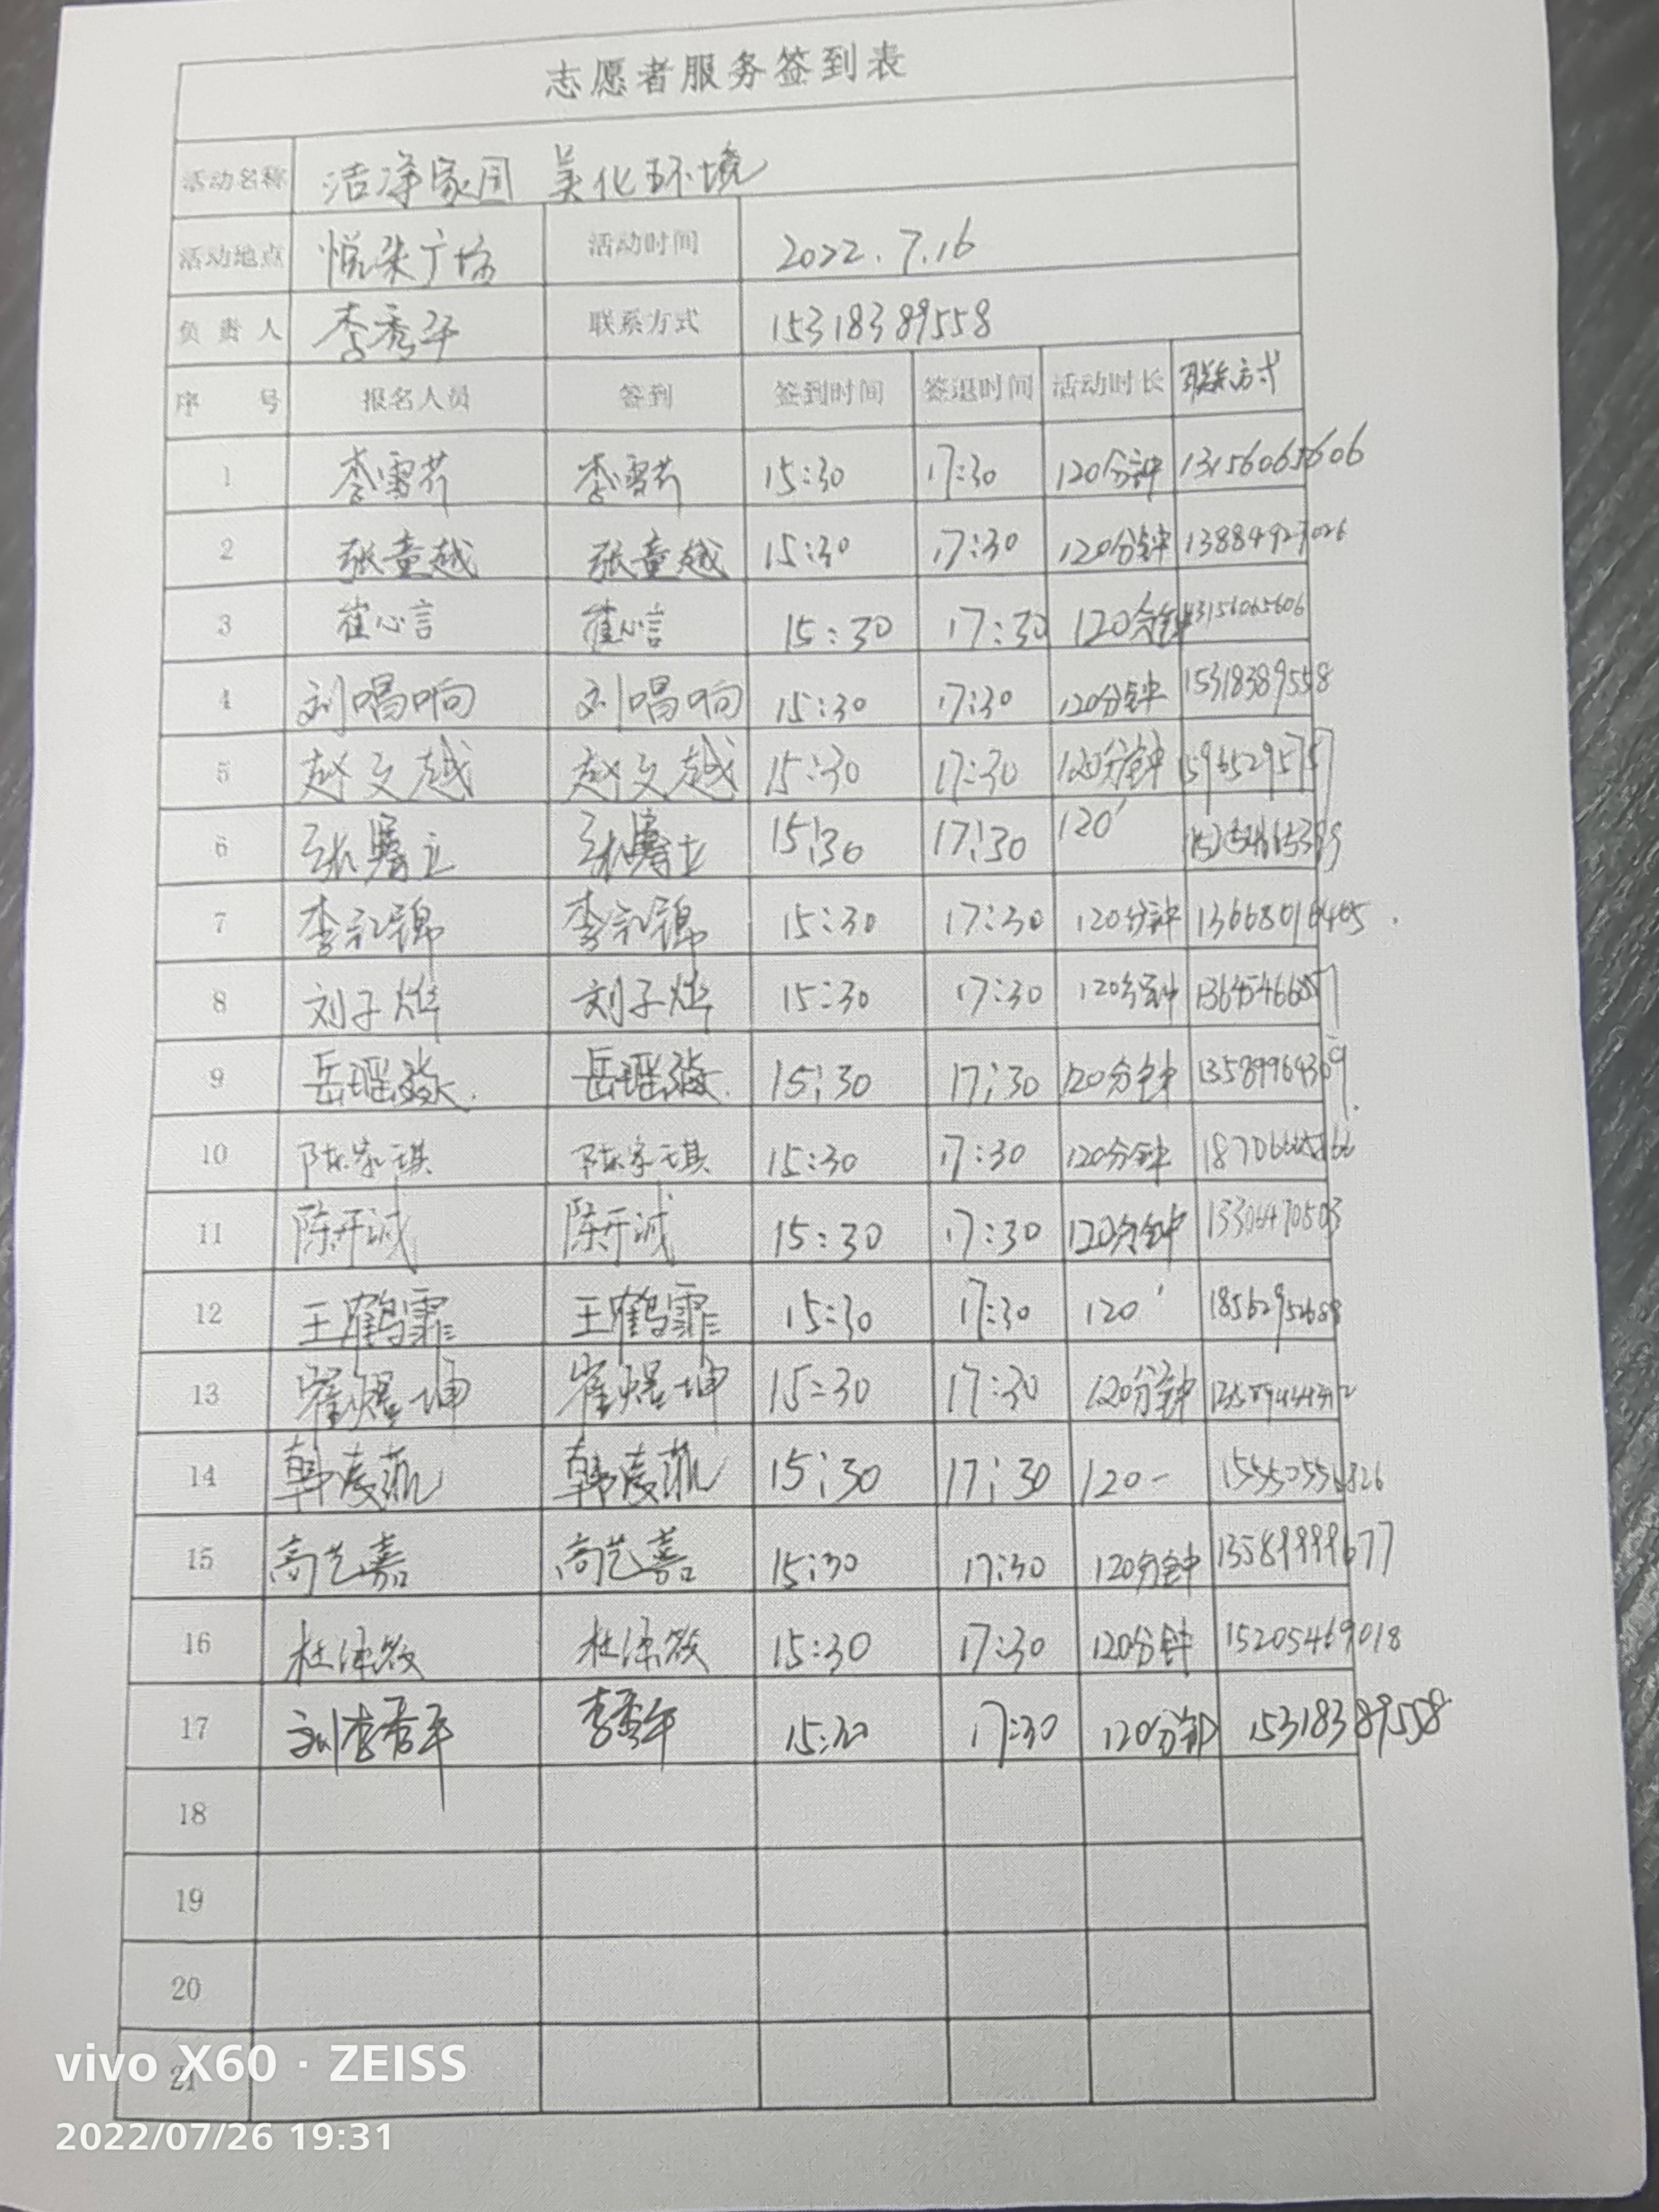 志愿者服务签到表
活动名称 洁净家园 美化环境
活动地点 悦来广场 活动时间 2022.7.16
负责人 李秀平 联系方式 15318389558
序号 报名人员 签到 签到时间 签退时间 活动时长 联系方式
1 李雪芹 李雪芹 15:30 17:30 120分钟 13156065606
2 张童越 张童越 15:30 17:30 120分钟 13884927026
3 崔心言 崔心言 15:30 17:30 120分钟 13156065606
4 刘唱响 刘唱响 15:30 17:30 120分钟 15318389558
5 赵文越 赵文越 15:30 17:30 120分钟
6 15:30 17:30 120'
7 15:30 17:30 120分钟
8 刘子烨 刘子烨 15:30 17:30 120分钟
9 15:30 17:30 120分钟
10 陈家琪 陈家琪 15:30 17:30 120分钟
11 陈开诚 陈开诚 15:30 17:30 120分钟 13306470503
12 王鹤霏 王鹤霏 15:30 17:30 120' 18562952688
13 崔煜坤 崔煜坤 15:30 17:30 120分钟
14 15:30 17:30 120- 15550556826
15 高艺嘉 高艺嘉 15:30 17:30 120分钟 13589999677
16 15:30 17:30 120分钟 15205469018
17 刘李秀平 李秀平 15:30 17:30 120分钟 15318389558
18
19
20
21
vivo X60 · ZEISS
2022/07/26 19:31